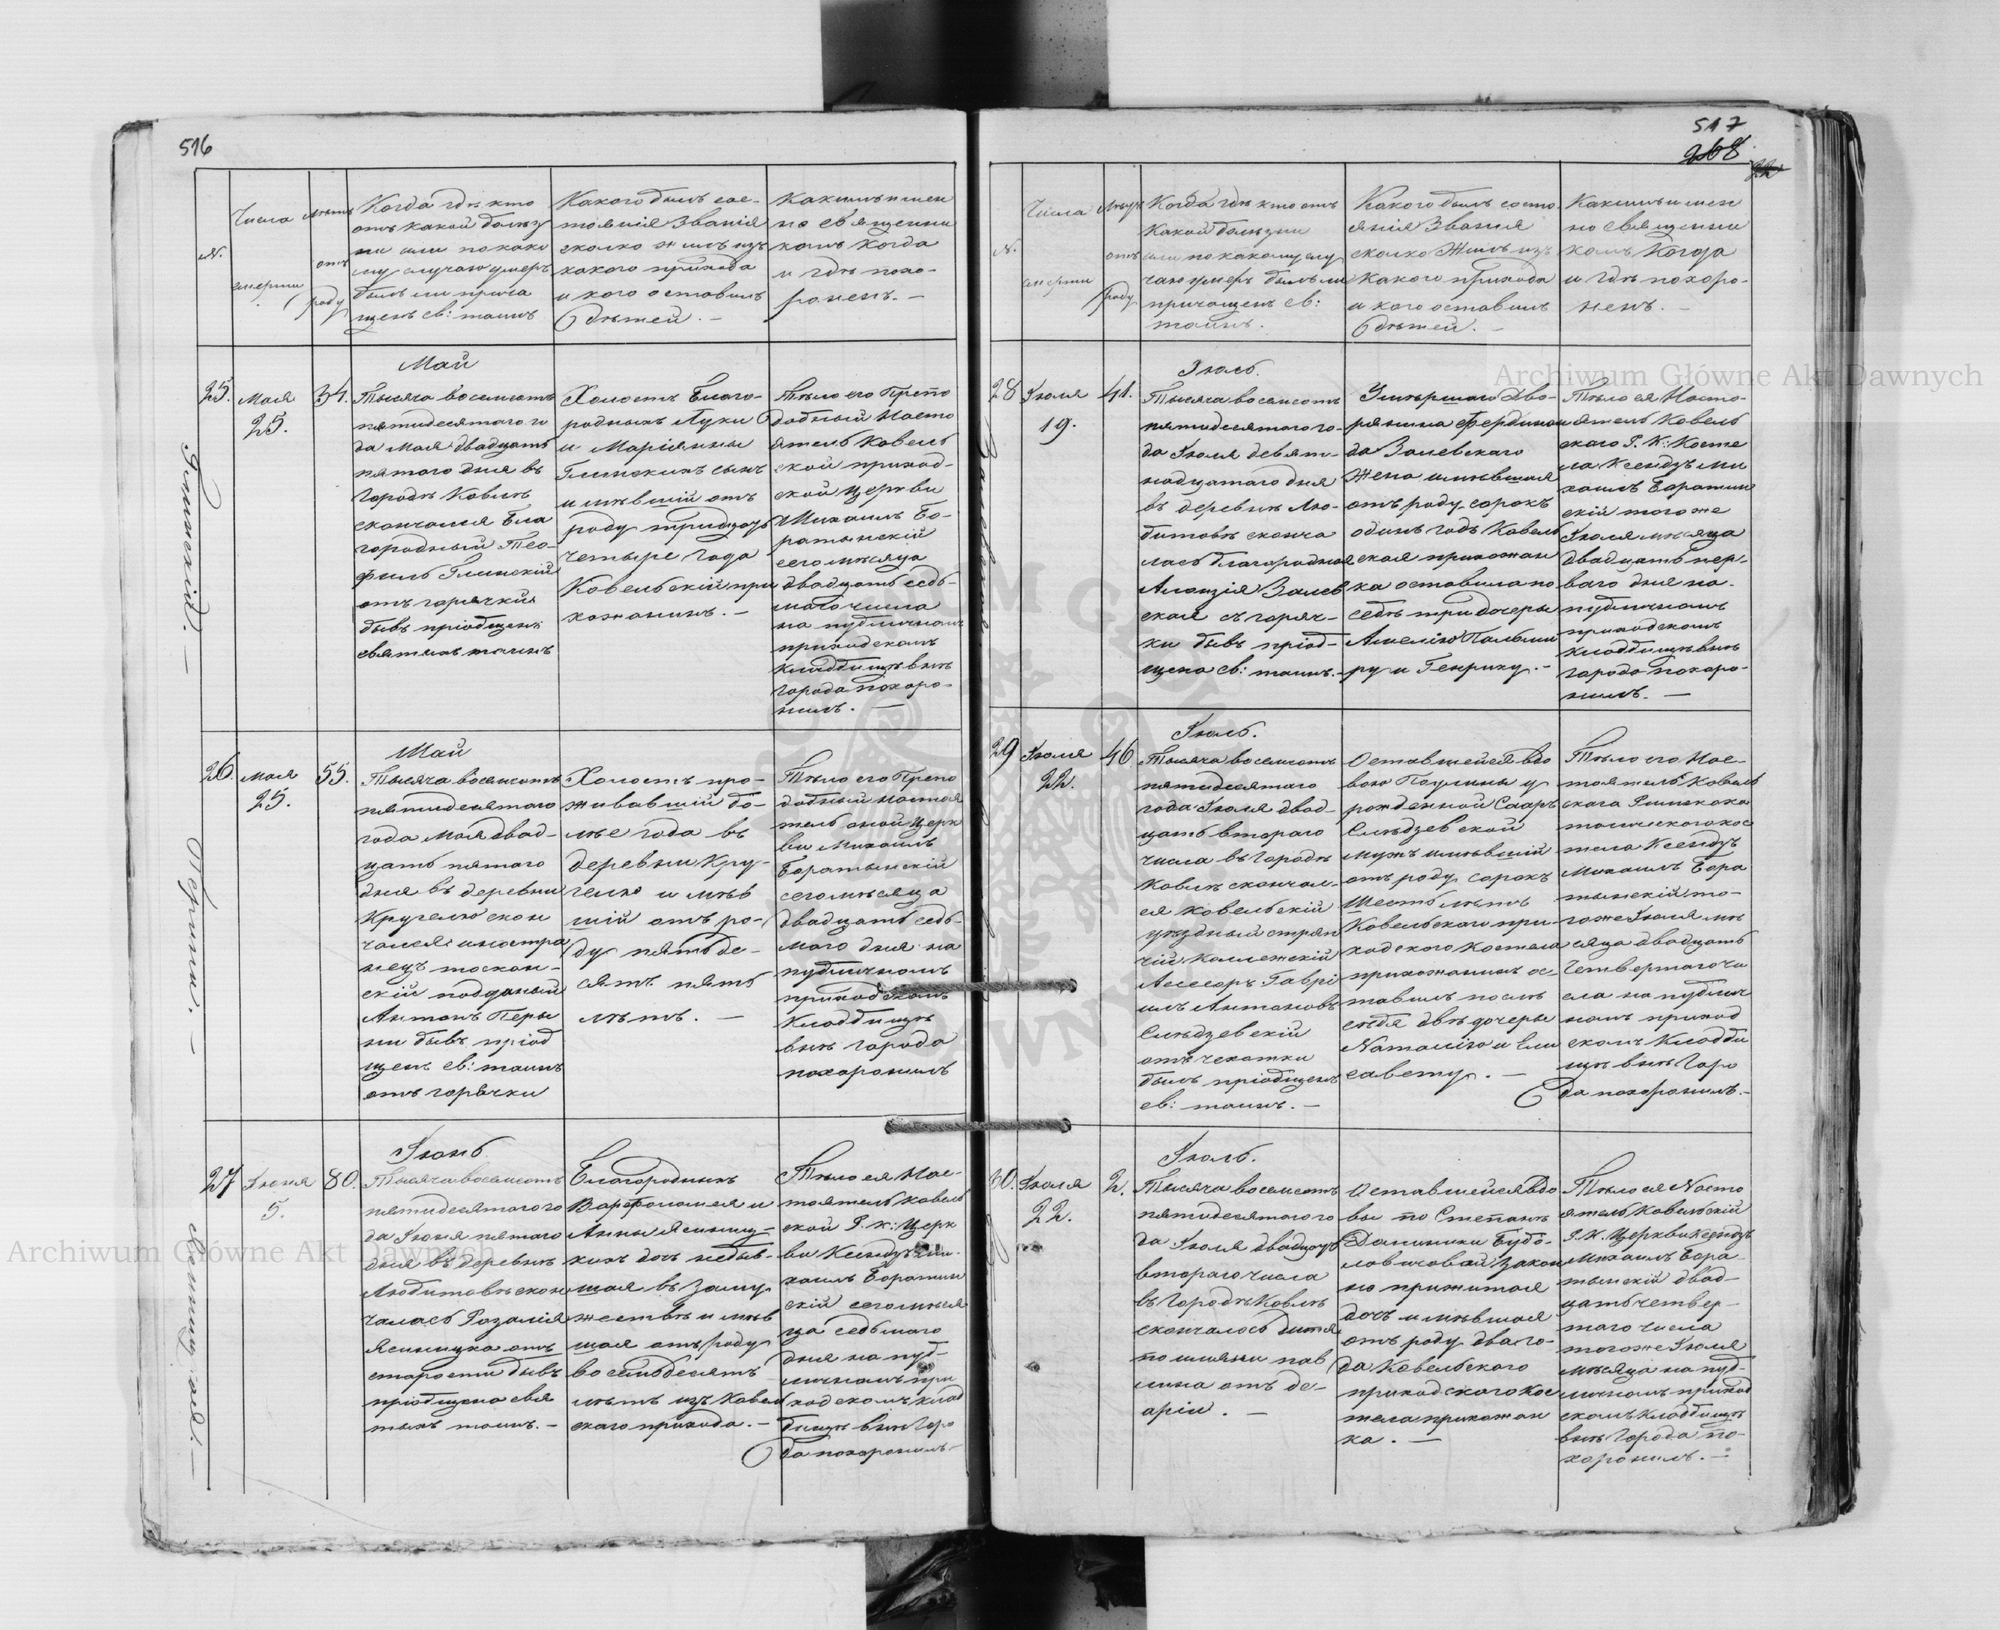 516
№.
Числа
смерти
Лѣтъ
отъ
роду
Когда гдѣ кто
отъ какой болѣз
ни или по како
му случаю умеръ
былъ ли прича
щенъ св: таинъ
Какого былъ сос-
тоянія Званія
сколко жилъ изъ
какого прихода
и кого оставилъ
дѣтей. –
Какимъ имен
но священни
комъ когда
и гдѣ похо-
роненъ. –
Глинскій. –
25.
Мая
25.
34.
Май
Тысяча восемсотъ
пятидесятого го
да Мая двадцать
пятого дня въ
городѣ Ковлѣ
скончался Бла
городный Тео-
филь Глинскій
отъ горячки
бывъ пріобщенъ
святыхъ таинъ
Холостъ Благо-
родныхъ Луки
и Маріянны
Глинскихъ сынъ
имѣвшій отъ
роду тридцать
четыре года
Ковельскій при
хожанинъ. –
Тѣло его Препо
добный Насто
ятель Ковель
ской приход-
ской церкви
Михаилъ Бо-
ратынскій
сего мѣсяца
двадцать седь-
маго числа
на публичномъ
приходскомъ
кладбищѣ внѣ
города похоро-
нилъ. –
Перини. –
26.
Мая
25.
55.
Май
Тысяча восемсотъ
пятидесятого
года Мая двад-
цать пятого
дня въ деревни
Кругелю скон
чался иностра
нецъ тоскан-
скій подданый
Антонъ Пери
ни бывъ пріоб
щенъ св: таинъ
отъ горячки
Холостъ про-
живавшій бо-
лѣе года въ
деревни Кру-
гелю и мѣв
шій отъ ро-
ду пятьде-
сятъ пять
лѣтъ. –
Тѣло его Препо
добный настоя
тель оной Церк
ви Михаилъ
Боратынскій
сего мѣсяца
двадцать седь-
маго дня на
публичномъ
приходскомъ
Кладбищѣ
внѣ города
похоронилъ
27
Іюня
5.
80.
Іюнь
Тысяча восемсотъ
пятидесятого го
да Іюня пятаго
дня въ деревнѣ
Любитовѣ скон
чалась Розалія
Ясницка отъ
старости бывъ
пріобщена свя
тыхъ таинъ. –
Благородныхъ
Варфоломея и
Анны Ясниц-
кихъ дочь небыв-
шая въ Заму
жествѣ и мѣв
шая отъ роду
восемьдесятъ
лѣтъ изъ Ковел
скаго прихода. –
Тѣло ея Нас-
тоятель Ковель
ской Р. к: Церк
ви Ксендзъ Ми-
хаилъ Боратын
скій сего мѣся
ца седьмого
дня на пуб-
личномъ при
ходскомъ клад
бищѣ внѣ горо
да похоронилъ –
517
268
№.
Числа
смерти
Лѣтъ
отъ
роду
Когда гдѣ кто отъ
Какой болѣзни
или по какому слу
чаю умеръ былъ ли
причащенъ св:
таинъ.
Какого былъ состо
янія Званія
сколко Жилъ изъ
Какого прихода
и кого оставилъ
дѣтей. –
Какимъ имен
но Священни
комъ Когда
и гдѣ похоро-
ненъ. –
28
Іюля
19.
41.
Іюль.
Тысяча восемсотъ
пятидесятого го-
да Іюля девят-
надцатаго дня
въ деревнѣ Лю-
битовѣ сконча
лась благородная
Алоизія Залев
ская съ горяч-
ки бывъ пріоб-
щена св: таинъ. –
Умершаго Дво-
рянина Фердинан
да Залевскаго
Жена имѣвшая
отъ роду сорокъ
одинъ годъ Ковель
ская прихожан
ка оставила по
себѣ три дочеры
Амелію Пальми
ру и Генрику. –
Тѣло ея Насто-
ятель Ковель
скаго Р. К: Косте
ла Ксендзъ Ми
хаилъ Боратын
скій тогоже
Іюля мѣсяца
двадцать пер-
ваго дня на
публичномъ
приходскомъ
кладбищѣ внѣ
города похоро-
нилъ. –
29
Іюля
22.
46.
Іюль.
Тысяча восемсотъ
пятидесятого
года Іюля двад
цать втораго
числа въ городѣ
Ковлѣ скончал-
ся Ковельскій
уѣздный стряп
чій Коллежскій
Асессоръ Гаврі
илъ Антоновъ
Слѣдзевскій
отъ чехотки
былъ пріобщенъ
св: таинъ. –
Оставшейся вдо
вою Паулины у
рожденной Сааръ
Слѣдзевской
мужъ имѣвшій
отъ роду сорокъ
Шесть лѣтъ
Ковельскаго при-
ходского костела
прихожанинъ ос-
тавилъ послѣ
себя двѣ дочеры
Наталію и Ели
савету. –
Тѣло его Нас-
тоятель Ковель
скаго Римско ка
толическаго кос
тела Ксендзъ
Михаилъ Бора
тынскій то-
гоже Іюля мѣ
сяца двадцать
Четвертаго чи
сла на публич
номъ приход
скомъ Кладби
щѣ внѣ Горо
да похоронилъ. –
30.
Іюля
22.
2.
Іюль.
Тысяча восемсотъ
пятидесятого го
да Іюля двадцать
втораго числа
въ Городѣ Ковлѣ
скончалось дитя
по имяни пав
лина отъ де-
аріи. –
Оставшейся вдо
вы по Степанѣ
Доминики Будо-
ловичовой закон
но прижитая
дочь имѣвшая
отъ роду два го-
да Ковельского
приходского Кос
тела прихожан
ка. –
Тѣло ея Насто
ятель Ковельскій
Р. К. Церкви Ксендзъ
Михаилъ Бора-
тынскій двад-
цать четвер-
таго числа
тогоже Іюля
мѣсяца на пуб-
личномъ приход
скомъ Кладбищѣ
внѣ Города по-
хоронилъ. –
Archiwum Główne Akt Dawnych
Archiwum Główne Akt Dawnych